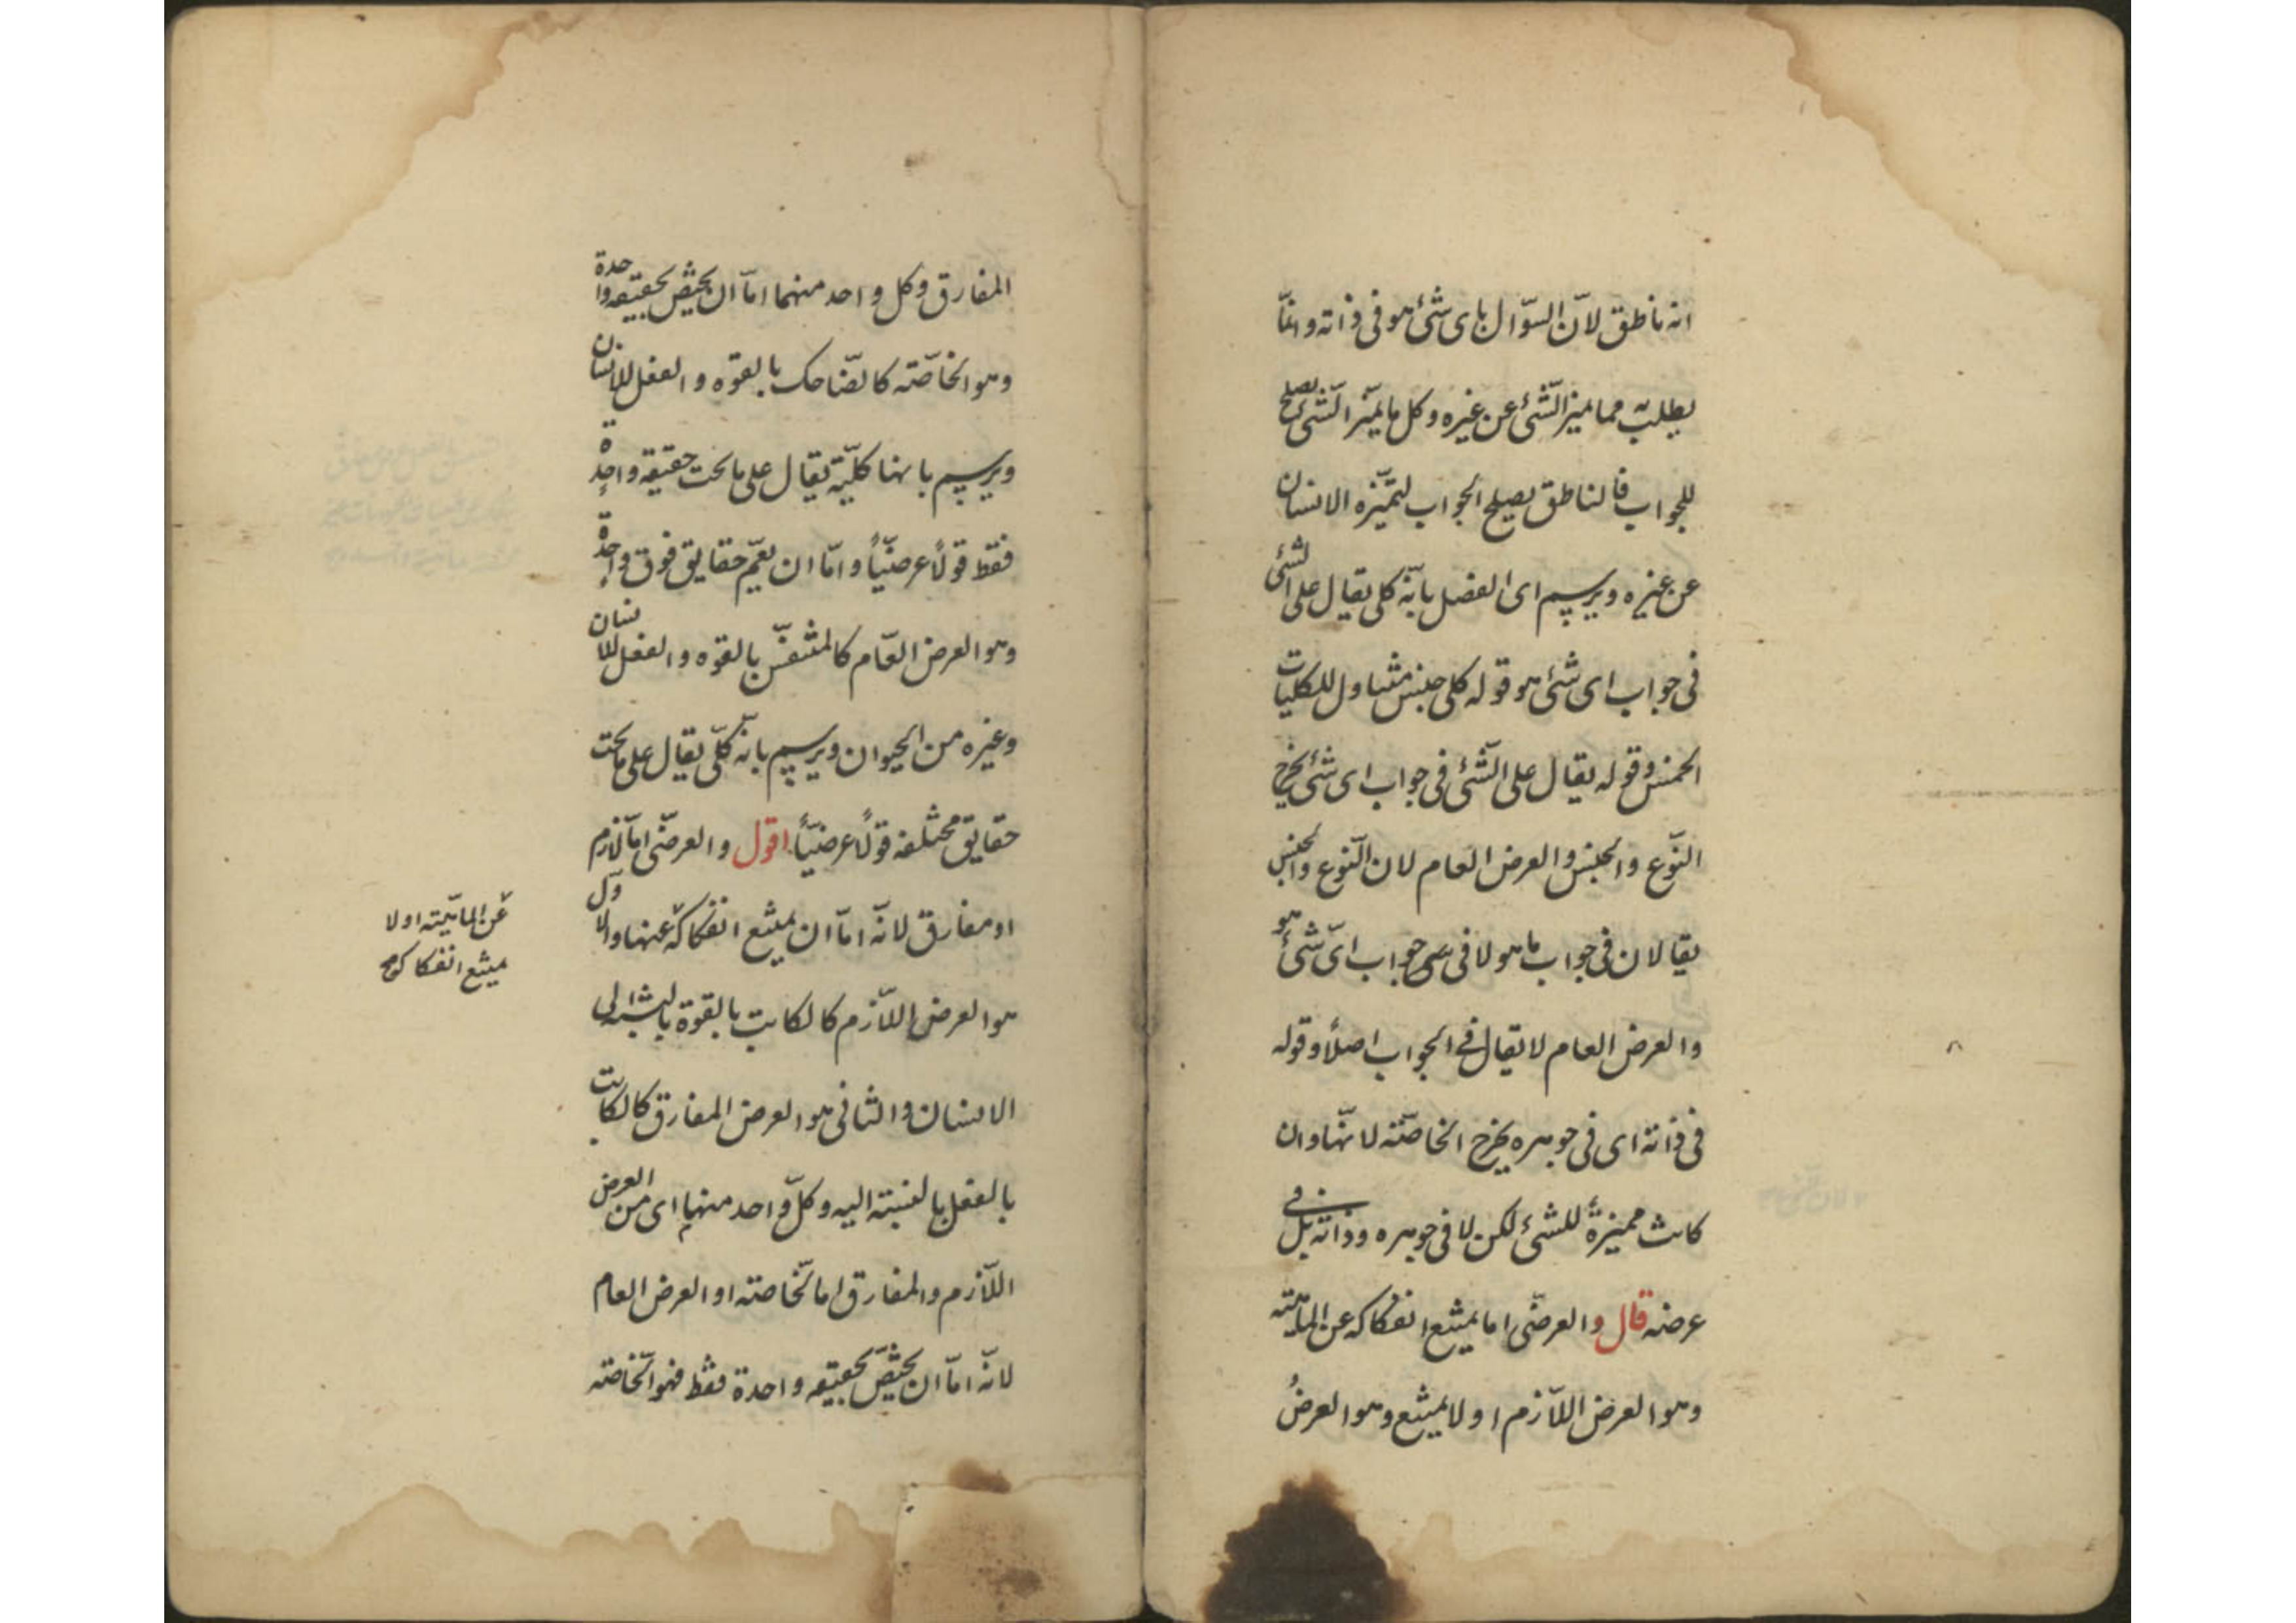 انه ناطق لانّ السؤال بای شئ هو فی ذاته وانمّا
یطلب به مما یمیز الشّئ عن غیره وکل ما یمیّز الشّئ یصلح
للجواب فالناطق یصلح الجواب لتمیّزه الانسان
عن غیره ویرسم ای الفصل بانّه کلی یقال علی الشئ
فی جواب ای شئ هو قوله کلی جنس متناول للکلیات
الخمس وقوله یقال علی الشّئ فی جواب ای شئ یخرج
النّوع والجنس والعرض العام لان النّوع والجنس
یقالان فی جواب ما هو لا فی جواب ایّ شئ هو
والعرض العام لا یقال فی الجواب اصلاً وقوله
فی ذاته ای فی جوهره یخرج الخاصّته لانهّا وان
کانت ممیزةً للشئ لکن لا فی جوهره وذاته بل فی
عرضه قال والعرضّی اما یمتنع انفکاکه عن الماهیّته
وهو العرض اللّازم او لا یمتنع وهو العرضُ
المفارق وکل واحد منهما امّا ان یختصّ بحقیقه واحدة
وهو الخاصّته کالضّاحک بالقوّه والفعل للانسان
ویرسم بانها کلیّة یقال علی ما تحت حقیقة واحدة
فقط قولاً عرضیّاً وامّا ان یعمّ حقایق فوق واحدة
وهو العرض العّام کالمتنفّس بالقوّه والفعل للانسان
وغیره من الحیوان ویرسم بانّه کلّی یقال علی ما تحت
حقایق مختلفه قولاً عرضیّاً اقول والعرضّی امّا لازم
او مفارق لانّه امّا ان یمتنع انفکاکه عنها والاوّل
عن الماهیّته او لا
یمتنع انفکاکه
هو العرض اللّازم کالکاتب بالقوة بالنسبة الی
الانسان والثانی هو العرض المفارق کالکاتب
بالفعل بالنسبته الیه وکلّ واحد منهما ای من العرض
اللّازم والمفارق اما الخّاصته او العرض العام
لانّه امّا ان یختصّ بحقیقه واحدة فقط فهو الخّاصته